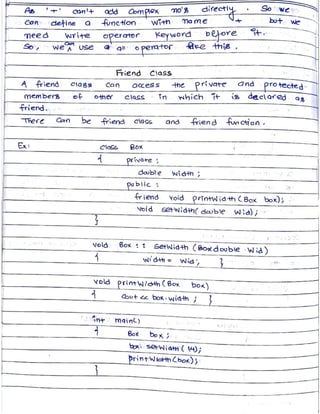 As '+' can't add complex no's directly. So we
can define a function with name + but we
need write operator keyword before it.
So, we can use a as operator like this.
Friend class
A friend class can access the private and protected
members of other class in which it is declared as
friend.
There can be friend class and friend function.
Ex: class Box
{ private:
double width;
public:
friend void printWidth(Box box);
void setWidth(double wid);
}
void Box::setWidth(Box double wid)
{ width = wid; }
void printWidth(Box box)
{ cout << box.width; }
int main()
{ Box box;
box. setWidth(14);
printWidth(box);
}